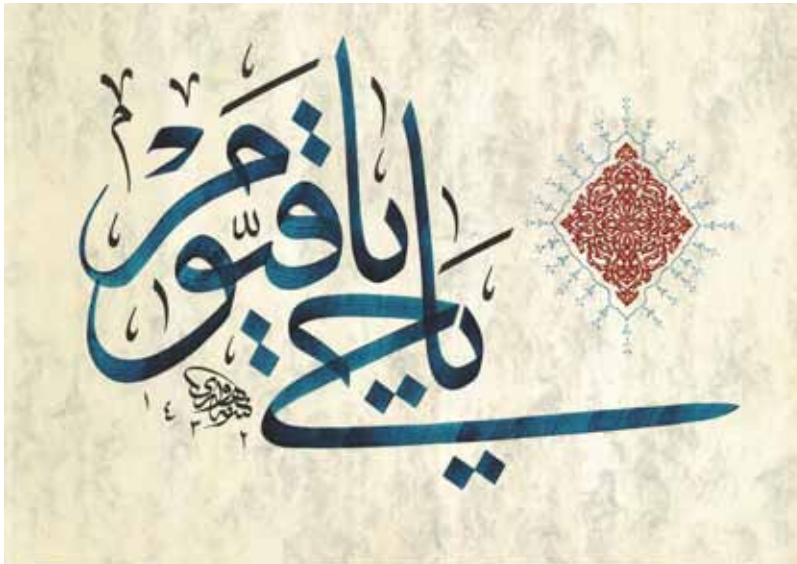 يا حي
يا قيّوم
١٤٣٢